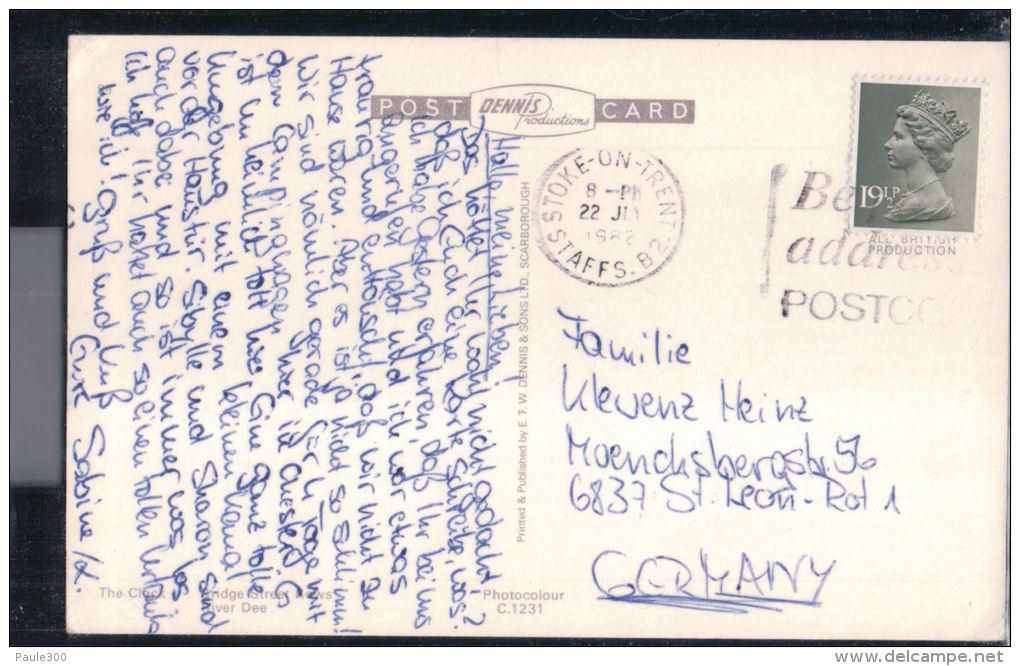 POST CARD
DENNIS
Productions
STOKE-ON-TRENT
8-PM
22 JLY
1982
STAFFS. B2
19½P
Be
addres
POSTCO
ALL BRITISH
PRODUCTION
Hallo meine Lieben!
Das hättet Ihr wohl nicht gedacht
daß ich Euch eine Karte schreibe, was?
Ich habe gestern erfahren, daß Ihr bei uns
angerufen habt und ich war etwas
traurig und enttäuscht, daß wir nicht zu
Hause waren. Aber es ist ja nicht so schlimm!
Wir sind nämlich gerade für 4 Tage mit
dem Campingwagen hier in
ist unheimlich toll hier. Eine ganz tolle
Umgebung mit einem kleinen Kanal
vor der Haustür. Sibylle und Sharon sind
auch dabei und so ist immer was los
Ich hoff', Ihr habt auch so einen tollen Urlaub
wie ich! Gruß und Kuß
Eure Sabine
Familie
Klevenz Heinz
Moenchsbergstr. 56
6837 St. Leon-Rot 1
GERMANY
Printed & Published by E. T. W. DENNIS & SONS LTD., SCARBOROUGH
The Clock
Bridge Street Rows
River Dee
Photocolour
C.1231
Paule300